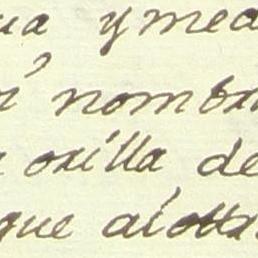 ua ymed
nombr
orilla de
que alott